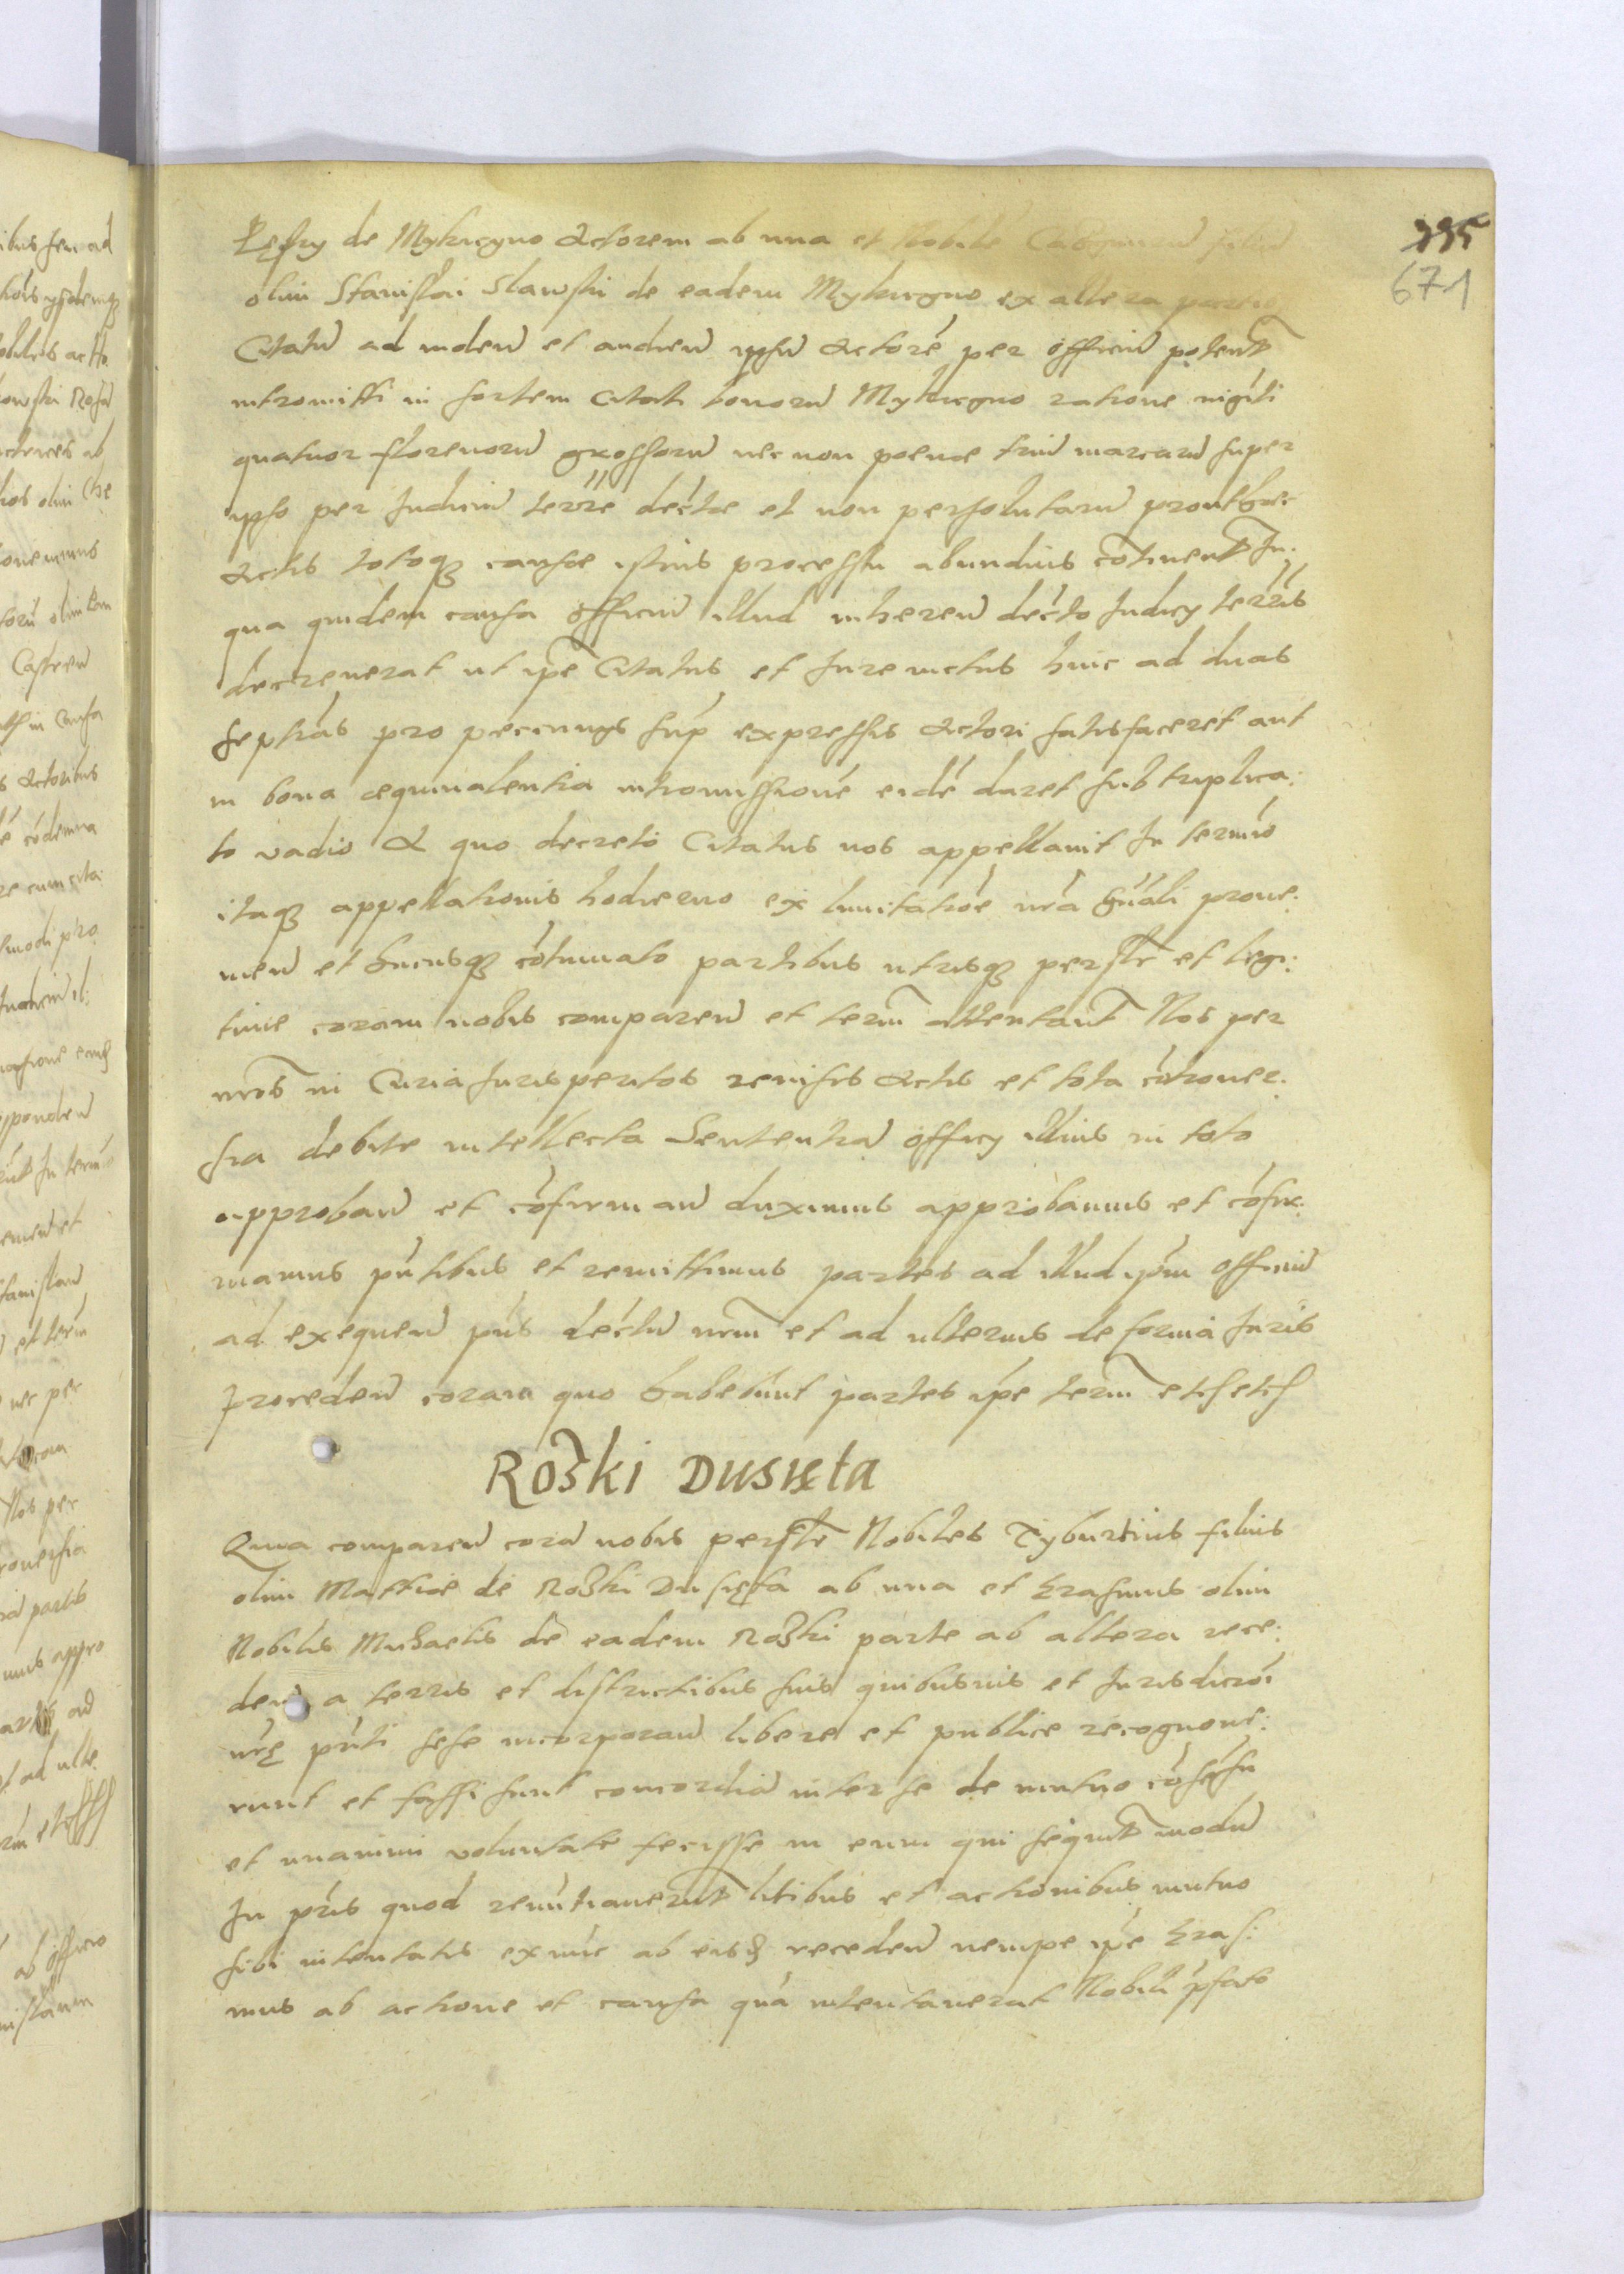 335
671
Łęsky de Mykiczyno Actorem ab una et Nobilē filiū
olim Stanislai Slawski de eadem Mykiczyno ex altera
Citatū ad videnū et audienū ypsū Actorē per officiū potent
intromitti in sortem Citati bonorū Mykicgno ratione vigīti
quatuor florenorū grossorū nec non poenae triū marcarū super
ypso per Judiciū terrē dectae et non persolutarū prout haec
Actis totoq causae istius processu abundius cōtinent In:
qua quidem causa officiū illud inherenū decto Judicy terris
decreuerat ut ipē Citatus et Jure victus huic ad duas
septias pro pecunys sup expressis Actori satisfaceret aut
in bona aequiualentia intromissionē eidē daret sub triplica:
to vadio A quo decreto Citatus nos appellauit In termīo
itaq appellationis hodierno ex limitatiōe nrā gnāli proue:
nienū et hucusq cōtinuato partibus utrisq persolr et legi:
time coram nobis comparenū et term attentant Nos per
nros in Curia Jurisperitos reuisis Actis et tota cōtrouer:
sia debite intellecta Sententiā officy illius in toto
approbanū et cōfirmanū duximus approbamus et cōfir:
mamus pntibus et remittimus partes ad illud ipm officiū
ad exequenū pns dectū nrm et ad ulterius de forma Juris
procedenū coram quo habebunt partes ipe term etc etc
Roski Dusięta
Quia comparenū corā nobis persolr Nobiles Tyburtius filius
olim Matthiae de Roski Dusięta ab una et Erasmus olim
Nobilis Michaelis de eadem Roski parte ab altera rece:
denū a terris et districtibus suis quibusuis et Jurisdicioi
nrę pnti sese incorporanū libere et publice recognoue:
runt et fassi sunt concordiā inter se de mutuo cōsesu
et unanimi voluntate fecisse in eum qui sequit modū
In prīs quod renūtiauerūt litibus et actionibus mutuo
sibi intentatis ex nūc ab eisd recedenū nempe ipe Eras:
mus ab actione et causa quā intentauerat Nobili psato